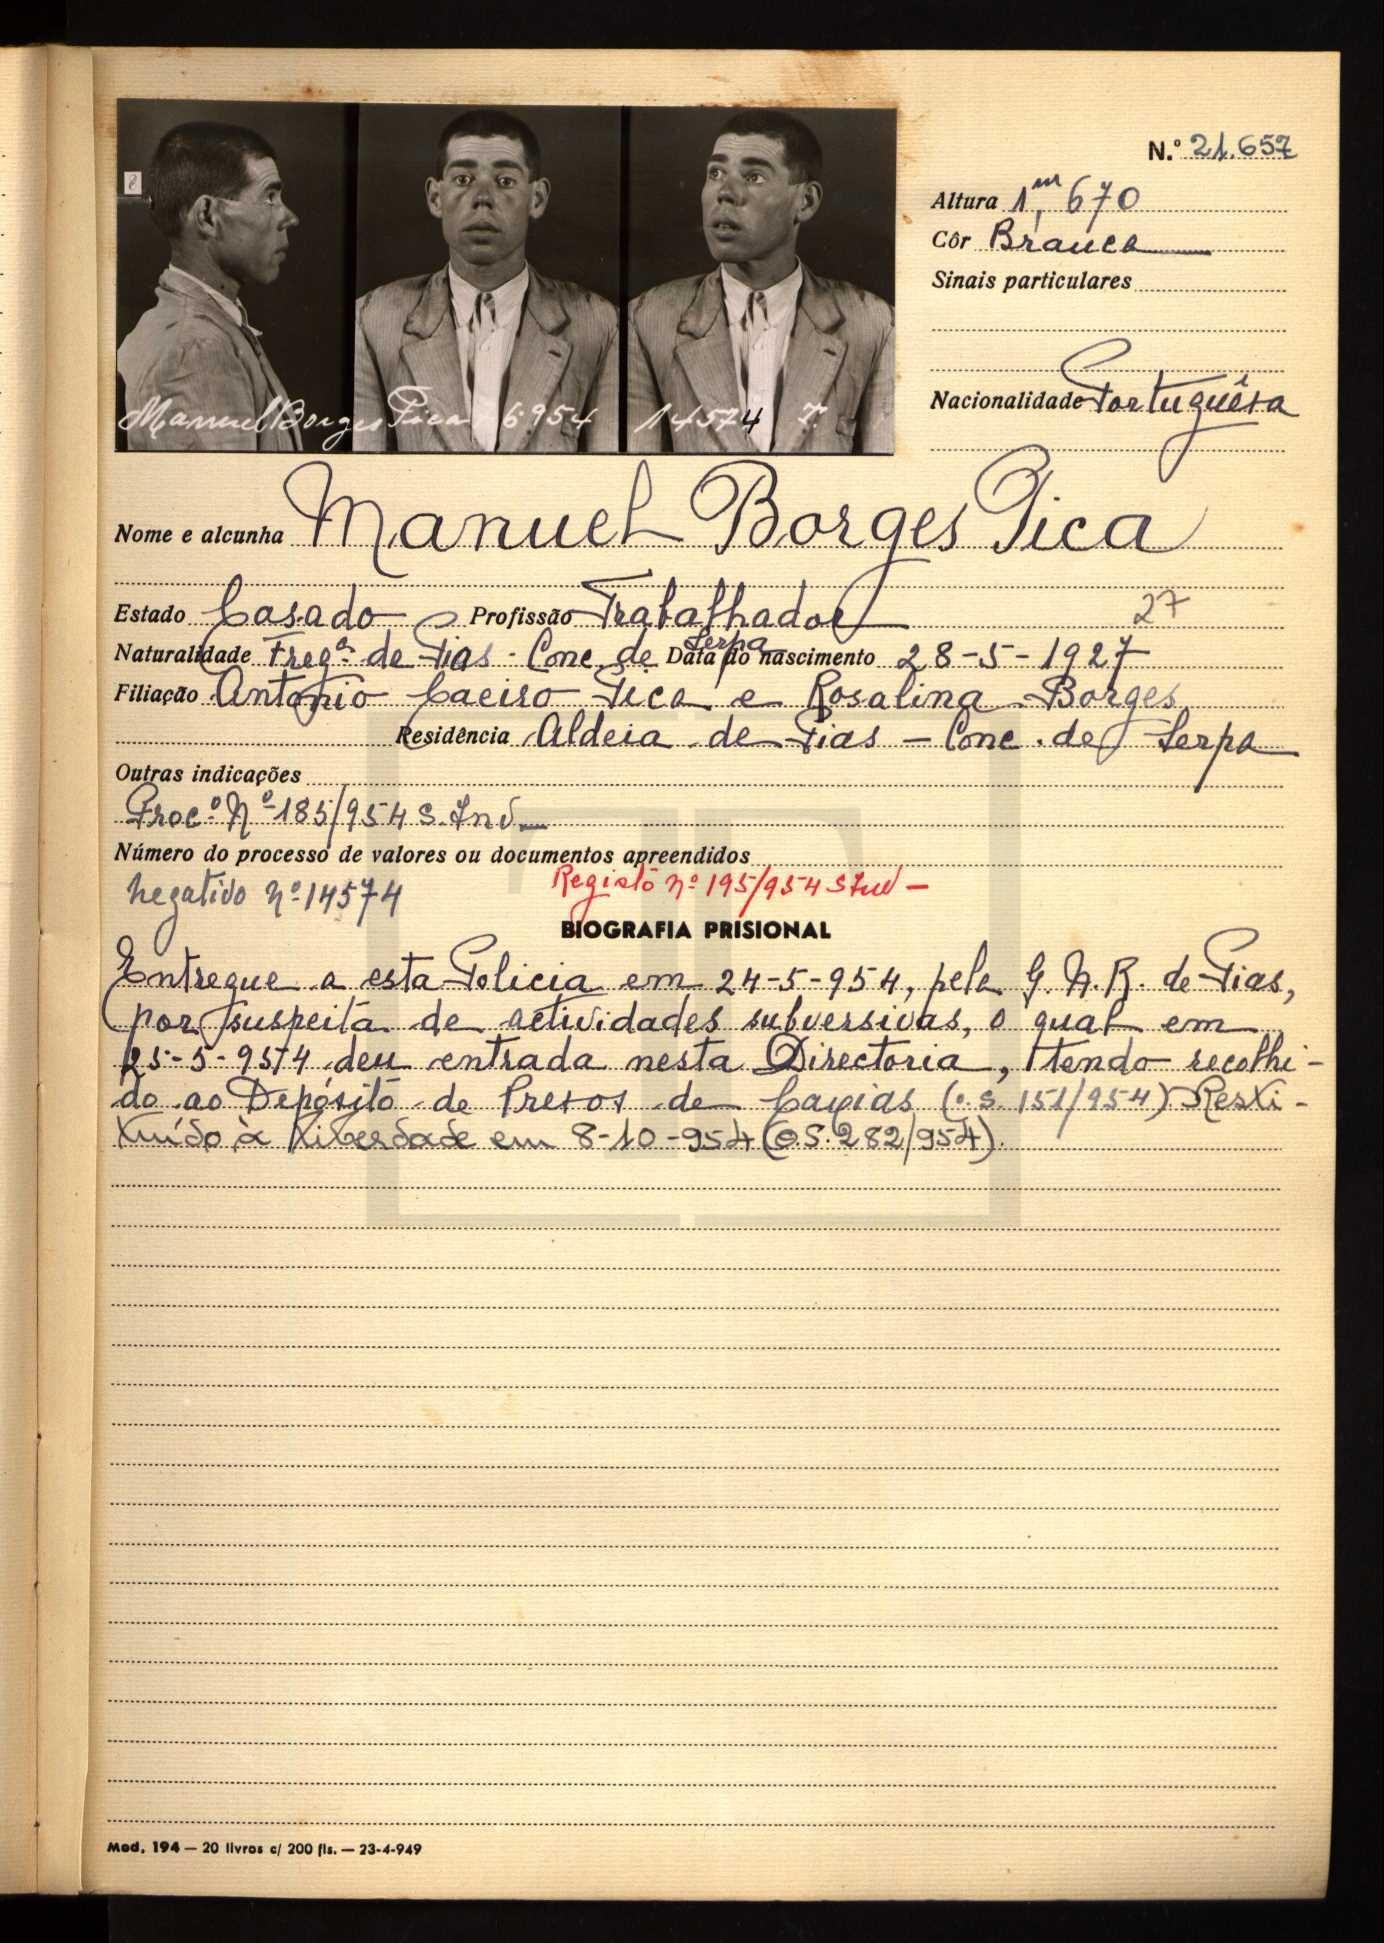 N.º 21.657
Altura 1,m 670
Côr Branca
Sinais particulares
Nacionalidade Portuguêsa
Manuel Borges Pica 6954 14574 T.
Nome e alcunha Manuel Borges Pica
Estado Casado Profissão Trabalhador 27
Naturalidade Freg.ª de Pias - Conc. de Serpa Data do nascimento 28-5-1927
Filiação Antonio Caeiro Pica e Rosalina Borges
Residência Aldeia de Pias - Conc. de Serpa
Outras indicações
Proc.º Nº 185/954 S. Inv.
Número do processo de valores ou documentos apreendidos
Negativo Nº 14574 Registo nº 195/954 S Inv -
BIOGRAFIA PRISIONAL
Entregue a esta Policia em 24-5-954, pela G. N. R. de Pias,
por suspeita de actividades subversivas, o qual em
25-5-954 deu entrada nesta Directoria, tendo recolhi-
do ao Depósito de Presos de Caxias (o.s. 151/954). Resti-
tuído à liberdade em 8-10-954 (O.S. 282/954).
Mod. 194 — 20 livros c/ 200 fls. — 23-4-949